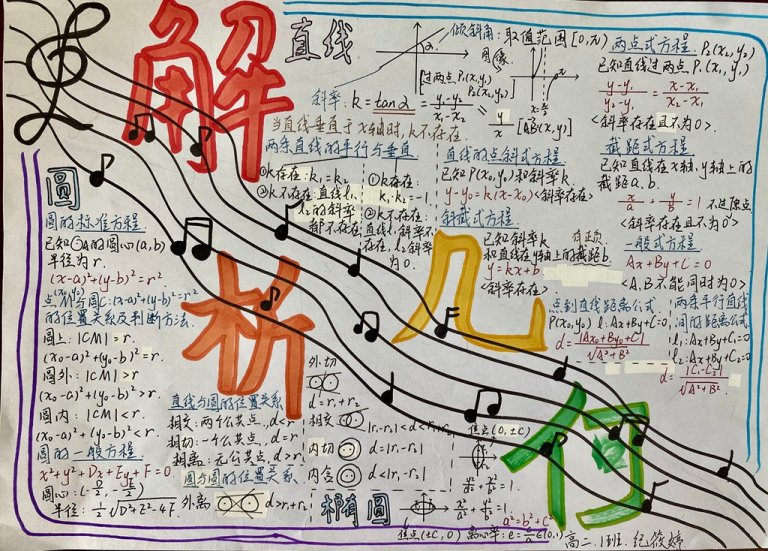 解析几何
直线
倾斜角：取值范围[0,π)
图像
过两点P₁(x₁,y₁)
P₂(x₂,y₂)
斜率：k=tanα=
当直线垂直于x轴时，k不存在.
[AB(x,y)]
两条直线的平行与垂直
①k存在：k₁=k₂
②k不存在：直线l₁，
l₂的斜率
都不存在
①k存在：
k₁·k₂=-1
②k不存在：
直线l₁斜率不
存在，l₂斜率
为0.
直线的点斜式方程
已知P(x₀,y₀)和斜率k
y-y₀=k(x-x₀)<斜率存在>
斜截式方程
已知斜率k
和直线在y轴上的截距b
y=kx+b
<斜率存在>
两点式方程 P₂(x₂,y₂)
已知直线过两点P₁(x₁,y₁)
y-y₁/y₂-y₁=x-x₁/x₂-x₁
<斜率存在且不为0>
截距式方程
已知直线在x轴、y轴上的
截距a.b.
x/a=y/B=1 不过原点
<斜率存在且不为0>
一般式方程
Ax+By+C=0
<A,B不能同时为0>
点到直线距离公式
P(x₀,y₀) l:Ax+By+C=0
d=|Ax₀+By₀+C|/√A²+B²
两条平行直线
间的距离公式
l₁:Ax+By+C₁=0
l₂:Ax+By+C₂=0
d=|C₁-C₂|/√A²+B²
圆
圆的标准方程
已知⊙A的圆心(a,b)
半径为r.
(x-a)²+(y-b)²=r²
点M(x₀,y₀)与圆C:(x-a)²+(y-b)²=r²
的位置关系及判断方法.
圆上：|CM|=r.
(x₀-a)²+(y₀-b)²=r.
圆外：|CM|>r
(x₀-a)²+(y₀-b)²>r.
圆内：|CM|<r.
(x₀-a)²+(y₀-b)²<r.
圆的一般方程
x²+y²+Dx+Ey+F=0
圆心：(-D/2,-E/2)
半径：1/2√D²+E²-4F.
直线与圆的位置关系
相交：两个公共点，d<r
相切：一个公共点，d=r
相离：无公共点，d>r
圆与圆的位置关系
外离 d>r₁+r₂
外切
d=r₁+r₂
相交
|r₁-r₂|<d<r₁+r₂
内切 d=|r₁-r₂|
内含 d<|r₁-r₂|
椭圆
焦点(0,±C)
x²/a²+y²/b²=1.
a²=b²+c²
焦点(±C,0) 离心率：e=c/a∈(0,1)
高二.1班.